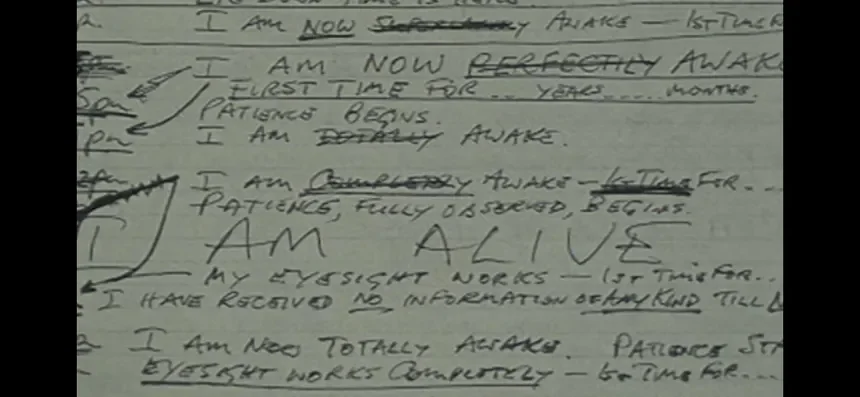 I AM NOW SUPERLATIVELY AWAKE — 1ST TIME
I AM NOW PERFECTLY AWAKE
FIRST TIME FOR .. YEARS .... MONTHS.
5pm
PATIENCE BEGINS.
pm I AM TOTALLY AWAKE.
2pm I AM COMPLETELY AWAKE — 1ST TIME FOR....
PATIENCE, FULLY OBSERVED, BEGINS.
I AM ALIVE
MY EYESIGHT WORKS — 1ST TIME FOR..
I HAVE RECEIVED NO INFORMATION OF ANY KIND TILL
I AM NOW TOTALLY AWAKE. PATIENCE
EYESIGHT WORKS COMPLETELY — 1ST TIME FOR....